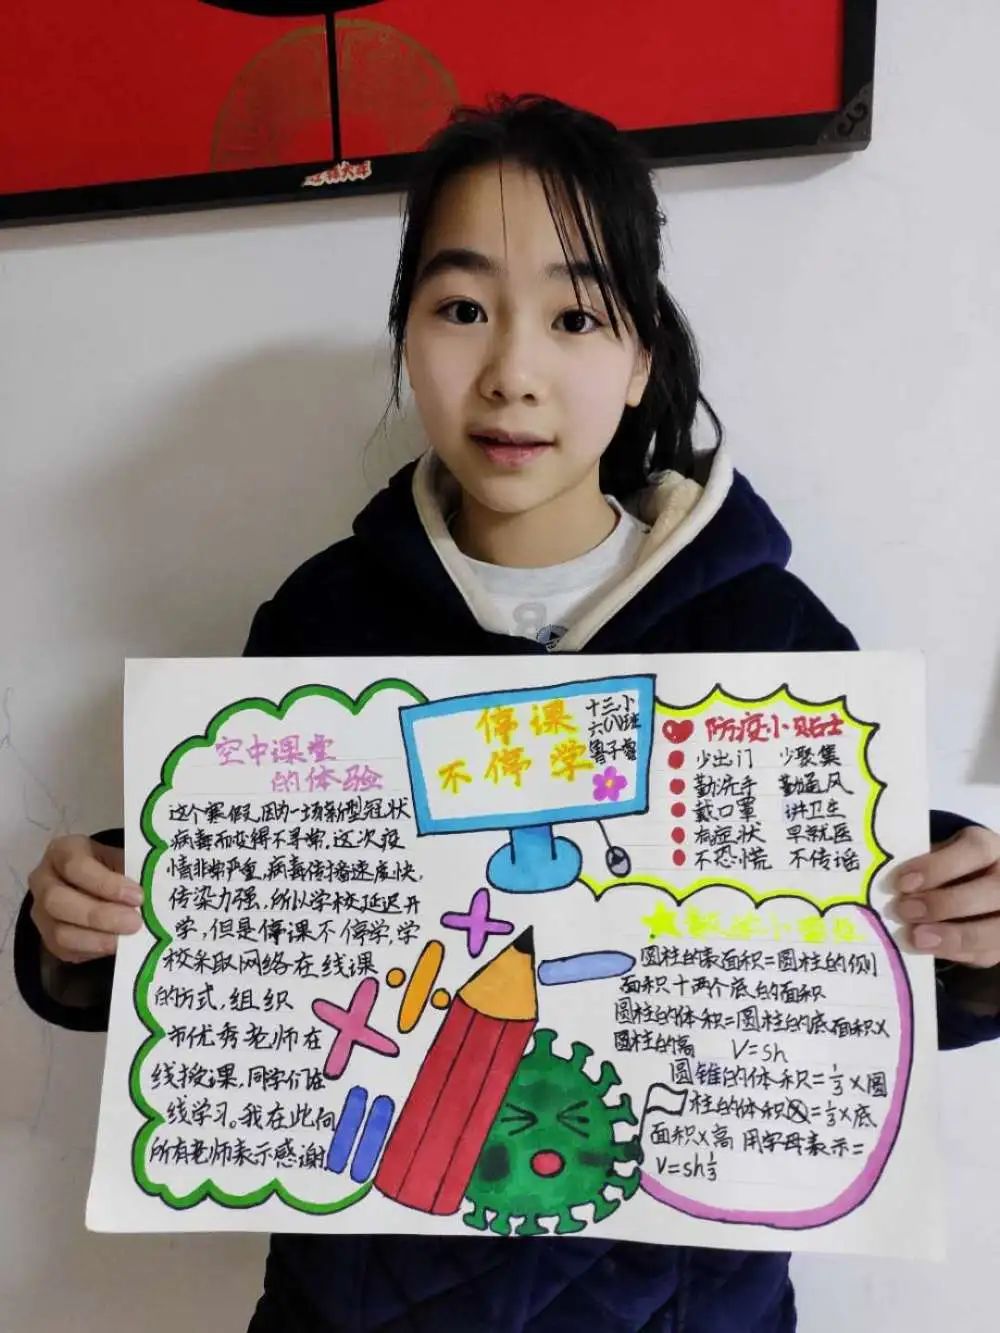 空中课堂
的体验
这个寒假,因为一场新型冠状
病毒而变得不寻常,这次疫
情非常严重,病毒传播速度快,
传染力强,所以学校延迟开
学,但是停课不停学,学
校采取网络在线课
的方式,组织
市优秀老师在
线授课,同学们在
线学习。我在此向
所有老师表示感谢
停课
不停学
十三小
六(1)班
鲁子睿
防疫小贴士
少出门 少聚集
勤洗手 勤通风
戴口罩 讲卫生
有症状 早就医
不恐慌 不传谣
圆柱的表面积=圆柱的侧
面积+两个底的面积
圆柱的体积=圆柱的底面积×
圆柱的高 V=sh
圆锥的体积=1/3×圆
柱的体积=1/3×底
面积×高 用字母表示=
V=sh1/3